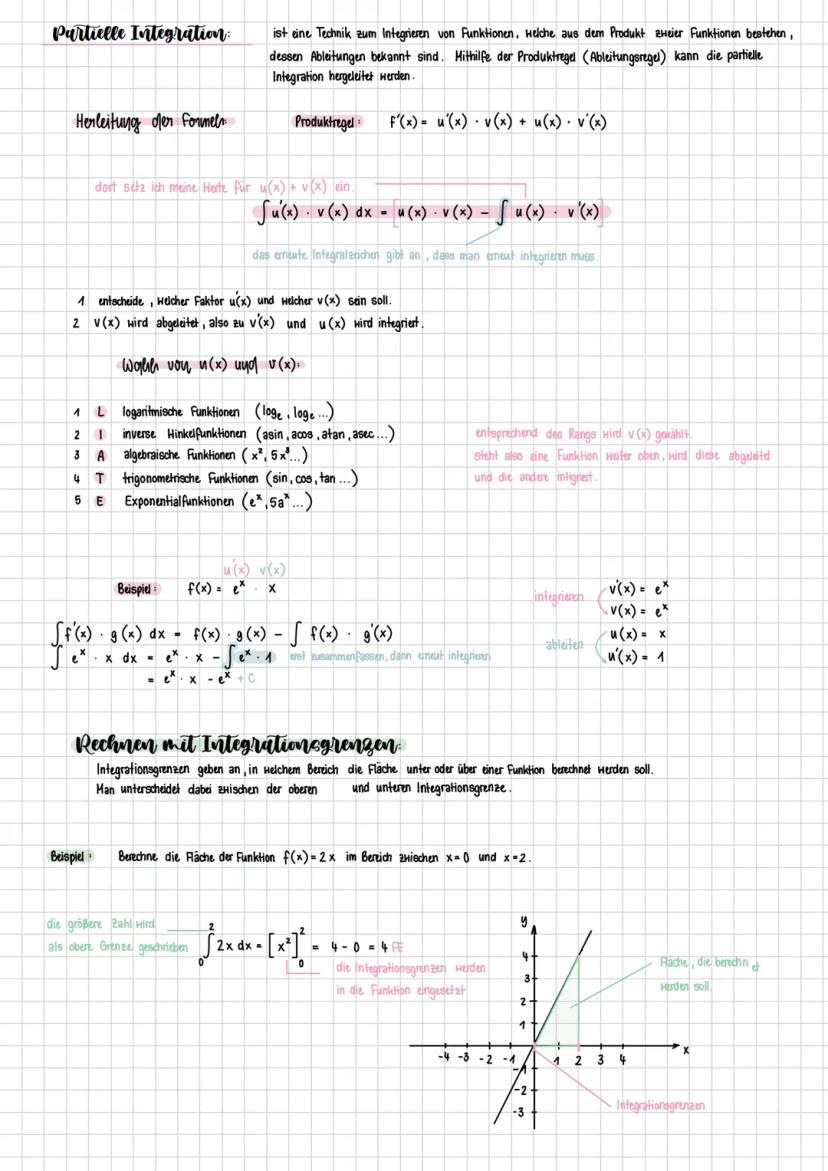 Partielle Integration: ist eine Technik zum Integrieren von Funktionen, welche aus dem Produkt zweier Funktionen bestehen,
dessen Ableitungen bekannt sind. Mithilfe der Produktregel (Ableitungsregel) kann die partielle
Integration hergeleitet werden.
Herleitung der Formeln: Produktregel: f'(x) = u'(x) · v(x) + u(x) · v'(x)
dort setz ich meine Werte für u(x) + v(x) ein.
∫u'(x) · v(x) dx = [u(x) · v(x) − ∫ u(x) · v'(x)]
das erneute Integralzeichen gibt an, dass man erneut integrieren muss.
1 entscheide, welcher Faktor u'(x) und welcher v(x) sein soll.
2 v(x) wird abgeleitet, also zu v'(x) und u(x) wird integriert.
Wahl von u(x) und v(x):
1 L logaritmische Funktionen (logₑ, logₑ...)
2 I inverse Winkelfunktionen (asin, acos, atan, asec...)
3 A algebraische Funktionen (x², 5x³...)
4 T trigonometrische Funktionen (sin, cos, tan ...)
5 E Exponentialfunktionen (eˣ, 5aˣ...)
entsprechend des Rangs wird v(x) gewählt.
steht also eine Funktion weiter oben, wird diese abgeleitet
und die andere intigriert.
u'(x) v(x)
Beispiel: f(x) = eˣ · x
integrieren v'(x) = eˣ
v(x) = eˣ
ableiten u(x) = x
u'(x) = 1
∫f'(x) · g(x) dx = f(x) · g(x) − ∫ f(x) · g'(x)
∫ eˣ · x dx = eˣ · x − ∫eˣ · 1 erst zusammenfassen, dann erneut integrieren
= eˣ · x − eˣ + C
Rechnen mit Integrationsgrenzen:
Integrationsgrenzen geben an, in welchem Bereich die Fläche unter oder über einer Funktion berechnet werden soll.
Man unterscheidet dabei zwischen der oberen und unteren Integrationsgrenze.
Beispiel: Berechne die Fläche der Funktion f(x) = 2x im Bereich zwischen x=0 und x=2.
die größere Zahl wird
als obere Grenze geschrieben
∫₀² 2x dx = [x²]₀² = 4 − 0 = 4 FE
die Integrationsgrenzen werden
in die Funktion eingesetzt
y
4
3
2
1
-4 -3 -2 -1 1 2 3 4 x
-1
-2
-3
Fläche, die berechnet
werden soll
Integrationsgrenzen